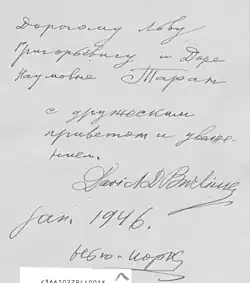 Дорогому Льву
Григорьевичу и Доре
Наумовне Таран
с дружеским
приветом и уваже-
нием.
David D Burliuk
Jan. 1946.
Нью-Йорк